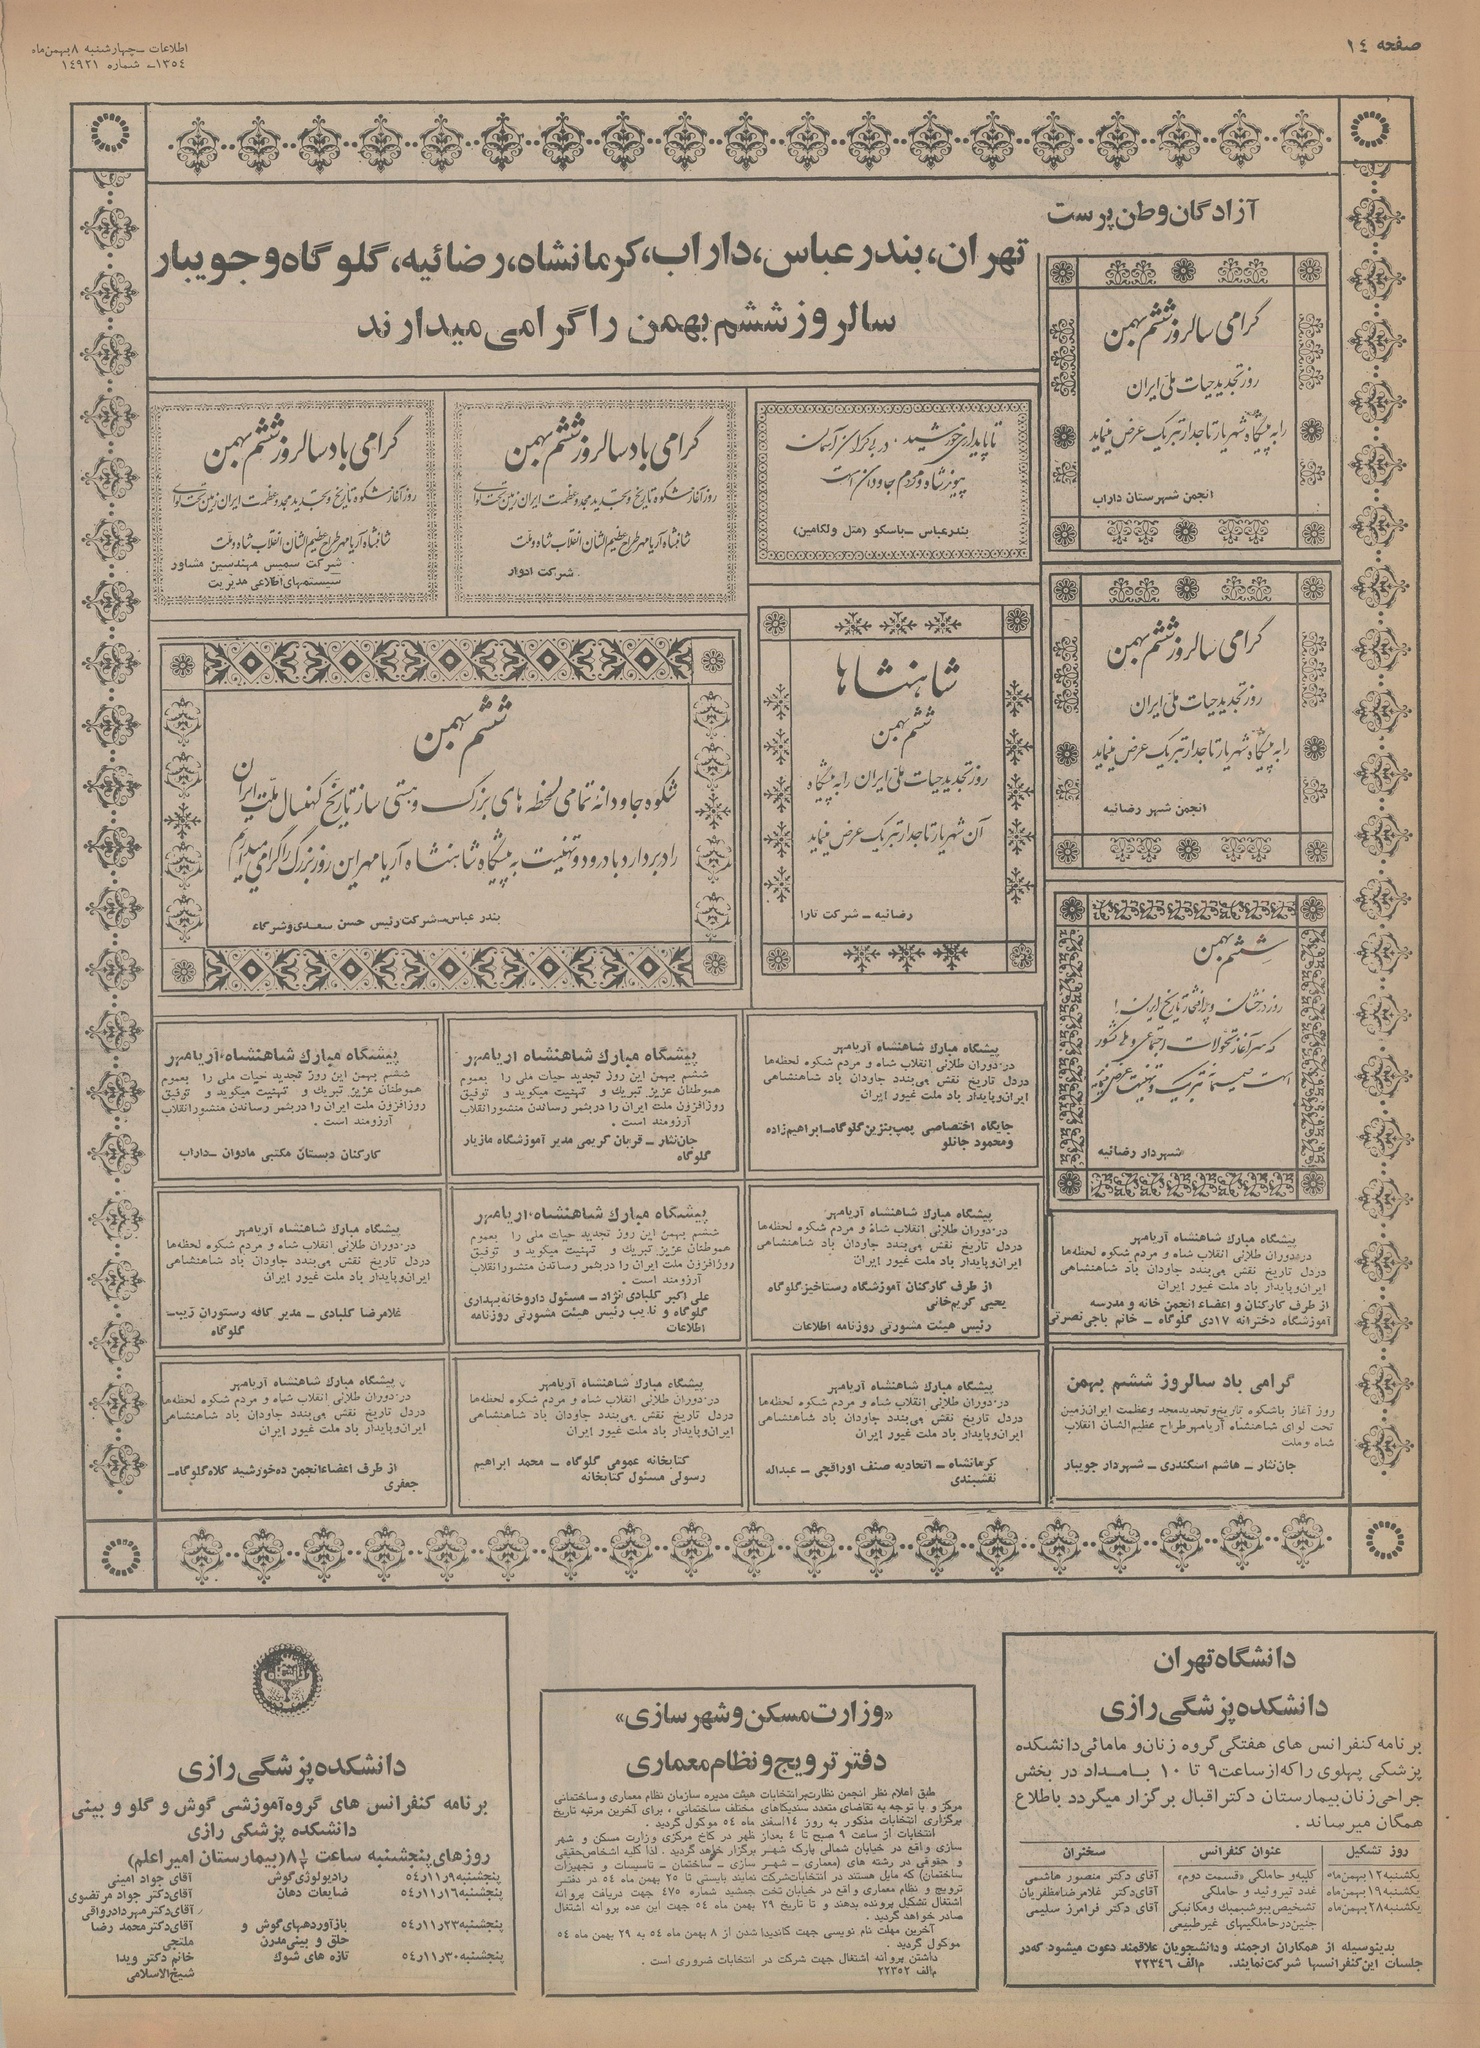 صفحه ۱۴
اطلاعات ـ چهارشنبه ۸ بهمن‌ماه
۱۳۵۴ـ شماره ۱۴۹۲۱
آزادگان وطن پرست
تهران، بندرعباس، داراب، کرمانشاه، رضائیه، گلوگاه و جویبار
سالروز ششم بهمن را گرامی میدارند
گرامی سالروز ششم بهمن
روز تجدید حیات ملی ایران
را به پیشگاه شهریار تاجدار تبریک عرض مینماید
انجمن شهرستان داراب
گرامی سالروز ششم بهمن
روز تجدید حیات ملی ایران
را به پیشگاه شهریار تاجدار تبریک عرض مینماید
انجمن شهر رضائیه
ششم بهمن
روز درخشان و پرافتخار تاریخ ایران!
که سرآغاز تحولات اجتماعی و ملی کشور
است صمیمانه تبریک و تهنیت عرض مینماید
شهردار رضائیه
تا پایداری خورشید، در بی‌کران آسمان
پیوند شاه و مردم جاودان است
بندرعباس ـ باسکو (متل ولکامین)
گرامی باد سالروز ششم بهمن
روز آغاز شکوه تاریخ و تجدید مجد و عظمت ایران زمین تحت لوای
شاهنشاه آریامهر طراح عظیم الشان انقلاب شاه و ملت
شرکت ادوار
گرامی باد سالروز ششم بهمن
روز آغاز شکوه تاریخ و تجدید مجد و عظمت ایران زمین تحت لوای
شاهنشاه آریامهر طراح عظیم الشان انقلاب شاه و ملت
شرکت سمیس مهندسین مشاور
سیستمهای اطلاعی مدیریت
شاهنشاها
ششم بهمن
روز تجدید حیات ملی ایران را به پیشگاه
آن شهریار تاجدار تبریک عرض مینماید
رضائیه ـ شرکت تارا
ششم بهمن
شکوه جاودانه تمامی لحظه های بزرگ و هستی ساز تاریخ کهنسال ملت ایران
را دربردارد با درود و تهنیت به پیشگاه شاهنشاه آریامهر این روز بزرگ را گرامی میداریم
بندر عباس ـ شرکت رئیس حسن سعدی و شرکاء
پیشگاه مبارک شاهنشاه آریامهر
در دوران طلائی انقلاب شاه و مردم شکوه لحظه‌ها
در دل تاریخ نقش می‌بندد جاودان باد شاهنشاهی
ایران و پایدار باد ملت غیور ایران
جایگاه اختصاصی پمپ بنزین گلوگاه ـ ابراهیم‌زاده
و محمود جانلو
پیشگاه مبارک شاهنشاه آریامهر
ششم بهمن این روز تجدید حیات ملی را بعموم
هموطنان عزیز تبریک و تهنیت میگوید و توفیق
روزافزون ملت ایران را در بثمر رساندن منشور انقلاب
آرزومند است .
جان‌نثار ـ قربان کریمی مدیر آموزشگاه مازیار
گلوگاه
پیشگاه مبارک شاهنشاه آریامهر
ششم بهمن این روز تجدید حیات ملی را بعموم
هموطنان عزیز تبریک و تهنیت میگوید و توفیق
روزافزون ملت ایران را در بثمر رساندن منشور انقلاب
آرزومند است .
کارکنان دبستان مکتبی مادوان ـ داراب
پیشگاه مبارک شاهنشاه آریامهر
در دوران طلائی انقلاب شاه و مردم شکوه لحظه‌ها
در دل تاریخ نقش می‌بندد جاودان باد شاهنشاهی
ایران و پایدار باد ملت غیور ایران
از طرف کارکنان و اعضاء انجمن خانه و مدرسه
آموزشگاه دخترانه ۱۷دی گلوگاه ـ خانم باجی‌نصرتی
پیشگاه مبارک شاهنشاه آریامهر
در دوران طلائی انقلاب شاه و مردم شکوه لحظه‌ها
در دل تاریخ نقش می‌بندد جاودان باد شاهنشاهی
ایران و پایدار باد ملت غیور ایران
از طرف کارکنان آموزشگاه رستاخیز گلوگاه
یحیی کریم‌خانی
رئیس هیئت مشورتی روزنامه اطلاعات
پیشگاه مبارک شاهنشاه آریامهر
ششم بهمن این روز تجدید حیات ملی را بعموم
هموطنان عزیز تبریک و تهنیت میگوید و توفیق
روزافزون ملت ایران را در بثمر رساندن منشور انقلاب
آرزومند است .
علی اکبر گلبادی نژاد ـ مسئول داروخانه بهداری
گلوگاه و نایب رئیس هیئت مشورتی روزنامه
اطلاعات
پیشگاه مبارک شاهنشاه آریامهر
در دوران طلائی انقلاب شاه و مردم شکوه لحظه‌ها
در دل تاریخ نقش می‌بندد جاودان باد شاهنشاهی
ایران و پایدار باد ملت غیور ایران
غلامرضا گلبادی ـ مدیر کافه رستوران زیب ـ
گلوگاه
گرامی باد سالروز ششم بهمن
روز آغاز باشکوه تاریخ و تجدید مجد و عظمت ایران زمین
تحت لوای شاهنشاه آریامهر طراح عظیم الشان انقلاب
شاه و ملت
جان‌نثار ـ هاشم اسکندری ـ شهردار جویبار
پیشگاه مبارک شاهنشاه آریامهر
در دوران طلائی انقلاب شاه و مردم شکوه لحظه‌ها
در دل تاریخ نقش می‌بندد جاودان باد شاهنشاهی
ایران و پایدار باد ملت غیور ایران
کرمانشاه ـ اتحادیه صنف اوراقچی ـ عبداله
نقشبندی
پیشگاه مبارک شاهنشاه آریامهر
در دوران طلائی انقلاب شاه و مردم شکوه لحظه‌ها
در دل تاریخ نقش می‌بندد جاودان باد شاهنشاهی
ایران و پایدار باد ملت غیور ایران
کتابخانه عمومی گلوگاه ـ محمد ابراهیم
رسولی مسئول کتابخانه
پیشگاه مبارک شاهنشاه آریامهر
در دوران طلائی انقلاب شاه و مردم شکوه لحظه‌ها
در دل تاریخ نقش می‌بندد جاودان باد شاهنشاهی
ایران و پایدار باد ملت غیور ایران
از طرف اعضاء انجمن ده خورشید کلاه گلوگاه ـ
جعفری
دانشگاه تهران
دانشکده پزشگی رازی
برنامه کنفرانس های هفتگی گروه زنان و مامائی دانشکده
پزشکی پهلوی را که از ساعت ۹ تا ۱۰ بامداد در بخش
جراحی زنان بیمارستان دکتر اقبال برگزار میگردد باطلاع
همگان میرساند .
روز تشکیل عنوان کنفرانس سخنران
یکشنبه ۱۲ بهمن‌ماه کلیه و حاملگی «قسمت دوم» آقای دکتر منصور هاشمی
یکشنبه ۱۹ بهمن‌ماه غدد تیروئید و حاملگی آقای دکتر غلامرضا مظفریان
یکشنبه ۲۸ بهمن‌ماه تشخیص بیوشیمیک و مکانیکی آقای دکتر فرامرز سلیمی
جنین در حاملگیهای غیرطبیعی
بدینوسیله از همکاران ارجمند و دانشجویان علاقمند دعوت میشود که در
جلسات این کنفرانسها شرکت نمایند. م‌الف ۲۲۳۴۶
«وزارت مسکن و شهرسازی»
دفتر ترویج و نظام معماری
طبق اعلام نظر انجمن نظارت بر انتخابات هیئت مدیره سازمان نظام معماری و ساختمانی
مرکز و با توجه به تقاضای متعدد سندیکاهای مختلف ساختمانی ، برای آخرین مرتبه تاریخ
برگزاری انتخابات مذکور به روز ۱۴ اسفند ماه ۵۴ موکول گردید .
انتخابات از ساعت ۹ صبح تا ۴ بعداز ظهر در کاخ مرکزی وزارت مسکن و شهر
سازی واقع در خیابان شمالی پارک شهر برگزار خواهد گردید . لذا کلیه اشخاص حقیقی
و حقوقی در رشته های (معماری ـ شهر سازی ـ ساختمان ـ تاسیسات و تجهیزات
ساختمان) که مایل هستند در انتخابات شرکت نمایند بایستی تا ۲۵ بهمن ماه ۵۴ در دفتر
ترویج و نظام معماری و اقع در خیابان تخت جمشید شماره ۴۷۵ جهت دریافت پروانه
اشتغال تشکیل پرونده بدهند و تا تاریخ ۲۹ بهمن ماه ۵۴ جهت این عده پروانه اشتغال
صادر خواهد گردید .
آخرین مهلت نام نویسی جهت کاندیدا شدن از ۸ بهمن ماه ۵۴ به ۲۹ بهمن ماه ۵۴
موکول گردید .
داشتن پروانه اشتغال جهت شرکت در انتخابات ضروری است .
م‌الف ۲۲۳۵۲
دانشکده پزشگی رازی
برنامه کنفرانس های گروه آموزشی گوش و گلو و بینی
دانشکده پزشکی رازی
روزهای پنجشنبه ساعت ۸ (بیمارستان امیراعلم)
پنجشنبه ۹ر۱۱ر۵۴ رادیولوژی گوش آقای جواد امینی
پنجشنبه ۱۶ر۱۱ر۵۴ ضایعات دهان آقای دکتر جواد مرتضوی
آقای دکتر مهرداد رواقی
پنجشنبه ۲۳ر۱۱ر۵۴ بازآوردهای گوش و آقای دکتر محمد رضا
حلق و بینی مدرن ملنجی
پنجشنبه ۳۰ر۱۱ر۵۴ تازه های شوک خانم دکتر ویدا
شیخ‌الاسلامی